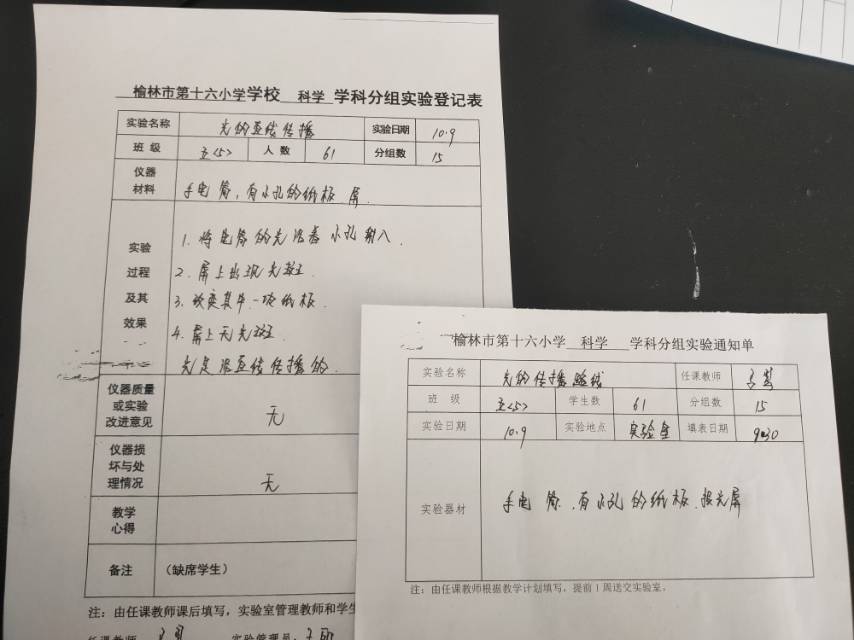 榆林市第十六小学学校 科学 学科分组实验登记表
实验名称 光的直线传播 实验日期 10.9
班 级 五<5> 人 数 61 分组数 15
仪器
材料 手电筒,有小孔的纸板 屏.
实验
过程
及其
效果
1. 将电筒的光沿着小孔射入.
2. 屏上出现光斑.
3. 改变其中一块纸板.
4. 屏上无光斑.
光是沿直线传播的.
仪器质量
或实验
改进意见 无
仪器损
坏与处
理情况 无
教学
心得
备注 (缺席学生)
注:由任课教师课后填写,实验室管理教师和学生
任课教师 实验管理员:
榆林市第十六小学 科学 学科分组实验通知单
实验名称 光的传播路线 任课教师
班 级 五<5> 学生数 61 分组数 15
实验日期 10.9 实验地点 实验室 填表日期 9.30
实验器材 手电筒.有小孔的纸板.接光屏
注:由任课教师根据教学计划填写,提前1周送交实验室。